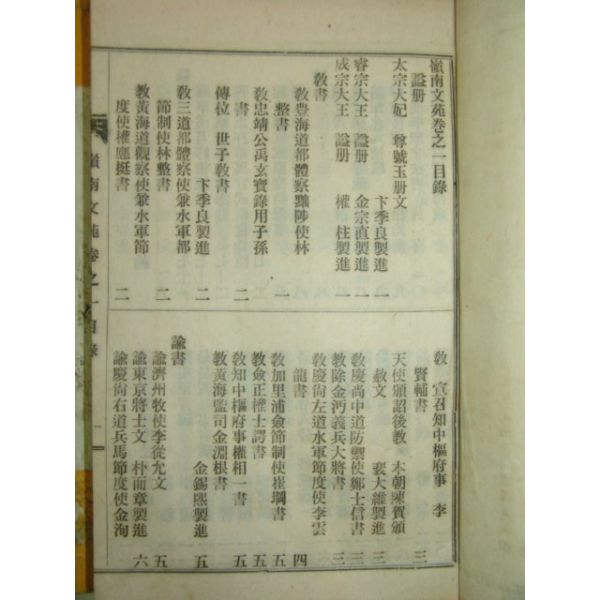 嶺南文苑卷之一目錄
諡册
太宗大妃 尊號玉册文
卞季良製進 二
睿宗大王 諡册 金宗直製進 二
成宗大王 諡册 權柱製進 二
敎書
敎豊海道都體察黜陟使林
整書 二
敎忠靖公禹玄寶錄用子孫
書 二
傳位 世子敎書
卞季良製進 二
敎三道都體察使兼水軍都
節制使林整書 二
敎黃海道觀察使兼水軍節
度使權應挺書 二
敎 宣召知中樞府事 李
賢輔書 三
天使頒詔後敎 本朝陳賀頒
赦文 裵大維製進 三
敎慶尙中道防禦使鄭士信書 三
敎除金沔義兵大將書 三
敎慶尙左道水軍節度使李雲
龍書 四
敎加里浦僉節制使崔堈書 五
敎僉正權士諤書 五
敎知中樞府事權相一書 五
敎黃海監司金淵根書
金錫熙製進 五
諭書
諭濟州牧使李從允文 五
諭東京將士文 朴而章製進 六
諭慶尙右道兵馬節度使金洵
嶺南文苑卷之一目錄 一